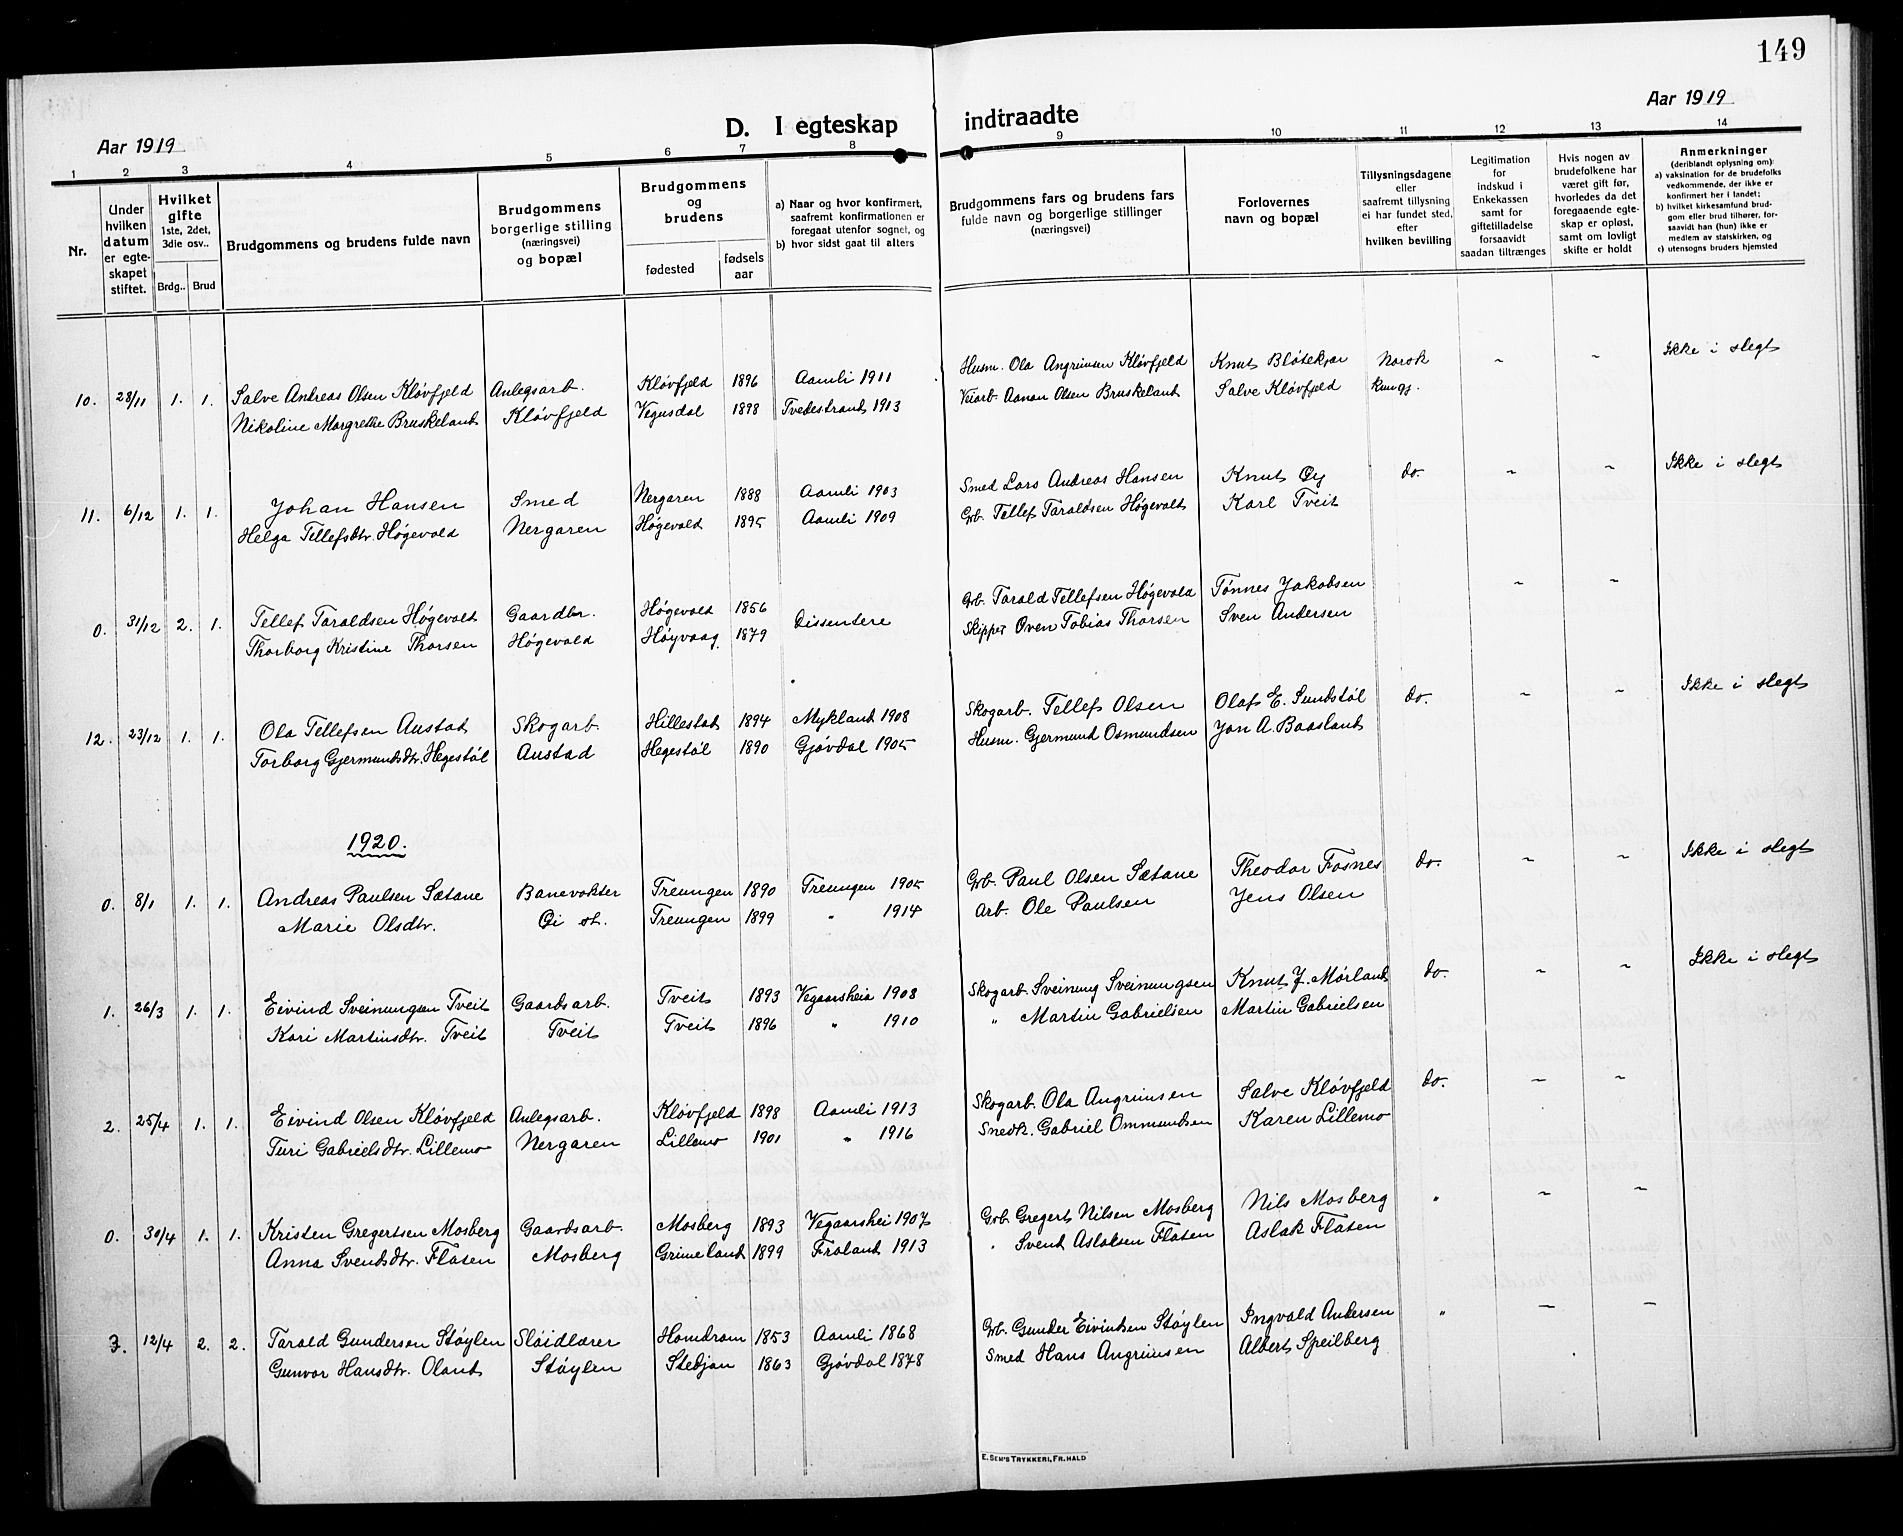 149
Aar 1919
D. I egteskap
indtraadte
Aar 1919
1 2 3 4 5 6 7 8 9 10 11 12 13 14
Nr.
Under hvilken datum er egteskapet stiftet.
Hvilket gifte 1ste, 2det, 3die osv..
Brdg.. Brud
Brudgommens og brudens fulde navn
Brudgommens borgerlige stilling (næringsvei) og bopæl
Brudgommens og brudens
fødested
fødselsaar
a) Naar og hvor konfirmert, saafremt konfirmationen er foregaat utenfor sognet, og
b) hvor sidst gaat til alters
Brudgommens fars og brudens fars fulde navn og borgerlige stillinger (næringsvei)
Forlovernes navn og bopæl
Tillysningsdagene eller saafremt tillysning ei har fundet sted, efter hvilken bevilling
Legitimation for indskud i Enkekassen samt for giftetilladelse forsaavidt saadan tiltrænges
Hvis nogen av brudefolkene har været gift før, hvorledes da det foregaaende egteskap er opløst, samt om lovligt skifte er holdt
Anmerkninger
(deriblandt oplysning om):
a) vaksination for de brudefolks vedkommende, der ikke er konfirmert her i landet;
b) hvilket kirkesamfund brudgom eller brud tilhører, forsaavidt han (hun) ikke er medlem av statskirken, og
c) utensogns bruders hjemsted
10. 28/11 1. 1. Salve Andreas Olsen Kløvfjeld Anlegsarb. Kløvfjeld 1896 Aamli 1911 Husm. Ola Angrimsen Kløvfjeld Knut Bløtekjær Norsk ~ ~ Ikke i slegt
Nikoline Margrethe Bruskeland Kløvfjeld Vegusdal 1898 Tvedestrand 1913 Veiarb. Aanon Olsen Bruskeland Salve Kløvfjeld kungj.
11. 6/12 1. 1. Johan Hansen Smed Nergaren 1888 Aamli 1903 Smed Lars Andreas Hansen Knut Øy do. ~ ~ Ikke i slegt
Helga Tellefsdtr. Høgevold Nergaren Høgevold 1895 Aamli 1909 Grb. Tellef Taraldsen Høgevold Karl Tveit
0. 31/12 2. 1. Tellef Taraldsen Høgevold Gaardbr. Høgevold 1856 Dissentere Grb. Tarald Tellefsen Høgevold Tønnes Jakobsen ~ ~
Thorborg Kristine Thorsen Høgevold Høyvaag 1879 Skipper Oven Tobias Thorsen Sven Andersen
12. 23/12 1. 1. Ola Tellefsen Austad Skogarb. Hillestad 1894 Mykland 1908 Skogarb. Tellef Olsen Olaf E. Sundstøl do. ~ ~ Ikke i slegt
Torborg Gjermundsdtr. Hegestøl Austad Hegestøl 1890 Gjøvdal 1905 Husm. Gjermund Osmundsen Jon A. Baasland
1920.
0. 8/1 1. 1. Andreas Paulsen Sætane Banevokter Treungen 1890 Treungen 1905 Grb. Paul Olsen Sætane Theodor Fosnes do. ~ ~ Ikke i slegt
Marie Olsdtr. Øi st. Treungen 1899 " 1914 Arb. Ole Paulsen Jens Olsen
1. 26/3 1. 1. Eivind Sveinungsen Tveit Gaardsarb. Tveit 1893 Vegaarshei 1908 Skogarb. Sveinung Sveinungsen Knut J. Mørland do. ~ ~ Ikke i slegt
Kari Martinsdtr. Tveit Tveit Tveit 1896 " 1910 " Martin Gabrielsen Martin Gabrielsen
2. 25/4 1. 1. Eivind Olsen Kløvfjeld Anlegsarb. Kløvfjeld 1898 Aamli 1913 Skogarb. Ola Angrimsen Salve Kløvfjeld do. ~ ~
Turi Gabrielsdtr. Lillemo Nergaren Lillemo 1901 " 1916 Snedk. Gabriel Ommundsen Karen Lillemo
0. 30/4 1. 1. Kristen Gregertsen Mosberg Gaardsarb. Mosberg 1893 Vegaarshei 1907 Grb. Gregert Nilsen Mosberg Nils Mosberg " ~ ~
Anna Svendsdtr. Flaten Mosberg Grimeland 1899 Froland 1913 " Svend Aslaksen Flaten Aslak Flaten
3. 12/4 2. 2. Tarald Gundersen Støylen Sløidlærer Homdrom 1853 Aamli 1868 Grb. Gunder Eivindsen Støylen Ingvald Andersen " — —
Gunvor Hansdtr. Oland Støylen Stedjan 1863 Gjøvdal 1878 Smed Hans Angrimsen Albert Speilberg
E. SEM'S TRYKKERI, FR.HALD